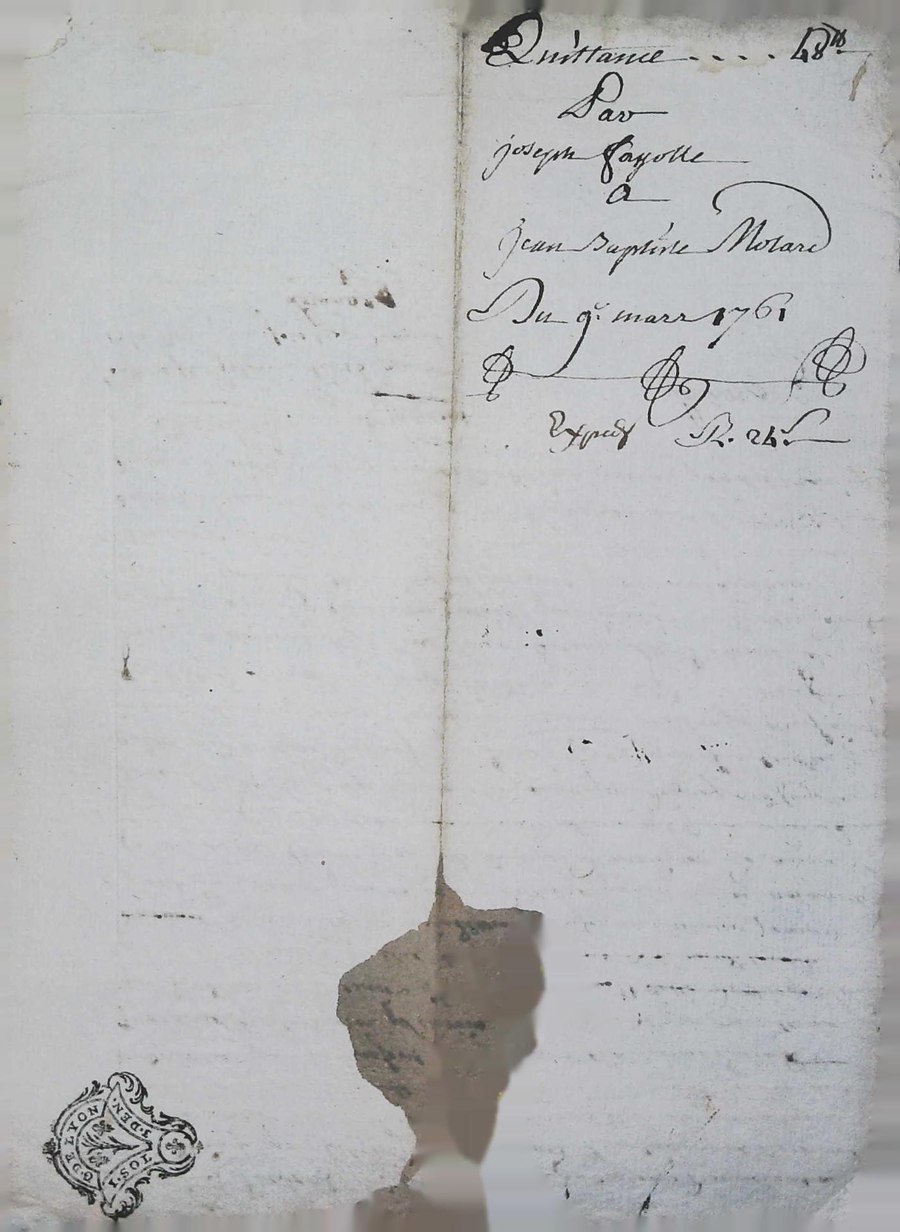 Quittance .... 48 ₶
Par
joseph fayolle
a
jean Baptiste Molard
Du 9e. mars 1761
R. 24 s
G. DE LYON
1. SOL
1. DEN.